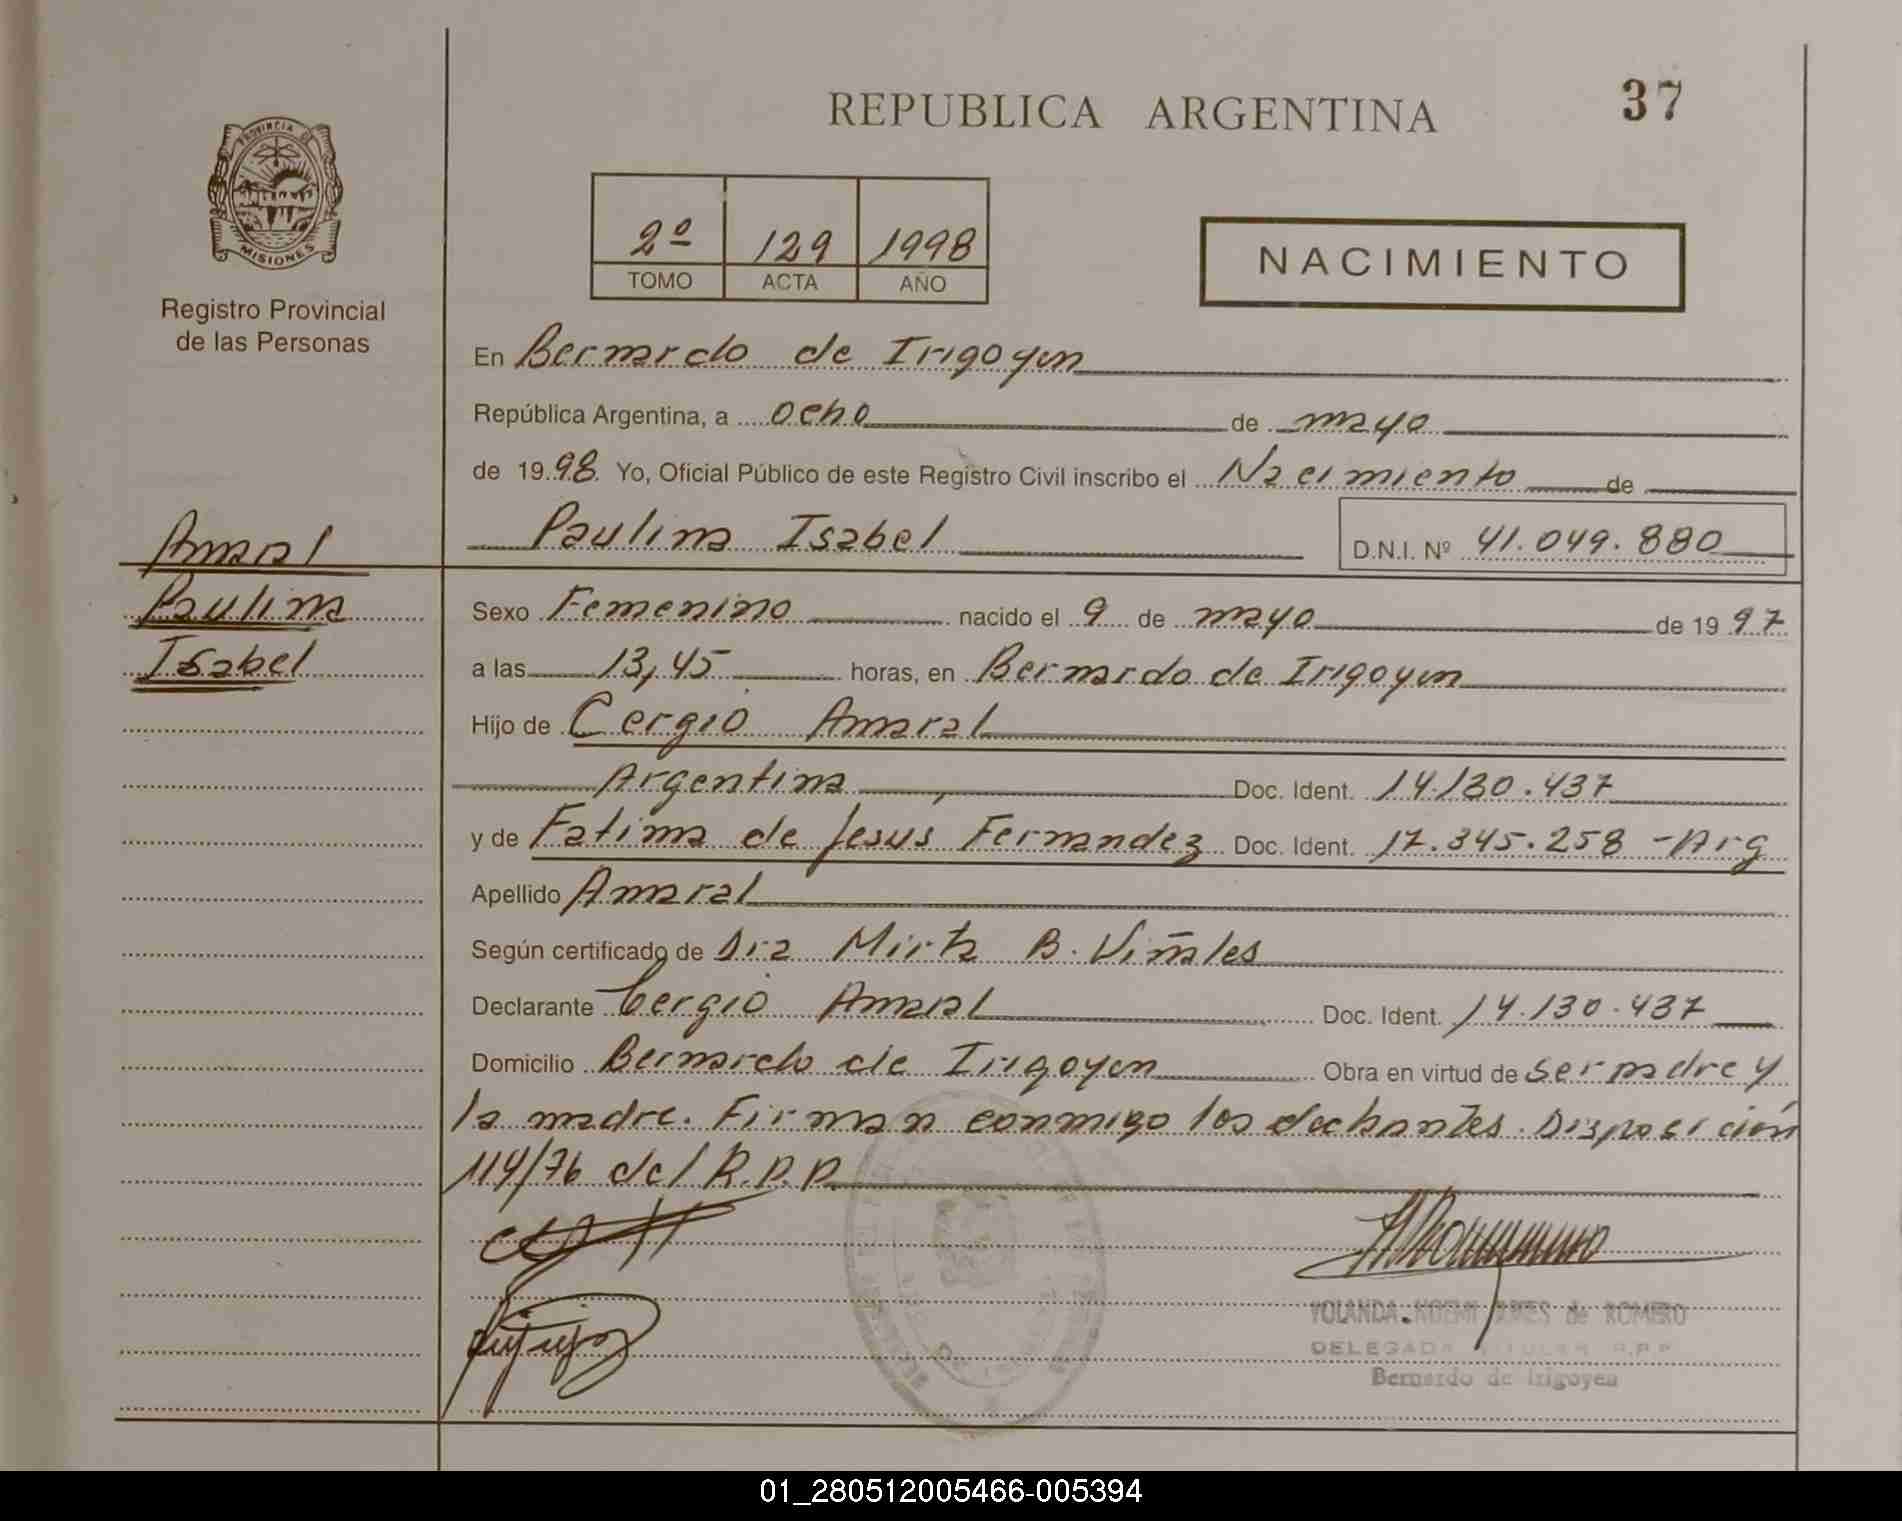 REPUBLICA ARGENTINA
37
PROVINCIA DE
MISIONES
Registro Provincial
de las Personas
2º 129 1998
TOMO ACTA AÑO
NACIMIENTO
En Bernardo de Irigoyen
República Argentina, a ocho de mayo
de 1998 Yo, Oficial Público de este Registro Civil inscribo el Nacimiento de
Paulina Isabel D.N.I. Nº 41.049.880
Amaral
Paulina
Isabel
Sexo Femenino nacido el 9 de mayo de 1997
a las 13,45 horas, en Bernardo de Irigoyen
Hijo de Cergio Amaral
Argentina Doc. Ident. 14.130.437
y de Fatima de Jesus Fernandez Doc. Ident. 17.345.258 - Arg
Apellido Amaral
Según certificado de Dra Mirta B. Viñales
Declarante Cergio Amaral Doc. Ident. 14.130.437
Domicilio Bernardo de Irigoyen Obra en virtud de ser padre y
la madre. Firman conmigo los declarantes. Disposición
114/76 del R.P.P.
YOLANDA NOEMI de ROMERO
DELEGADA TITULAR R.P.P.
Bernardo de Irigoyen
01_280512005466-005394